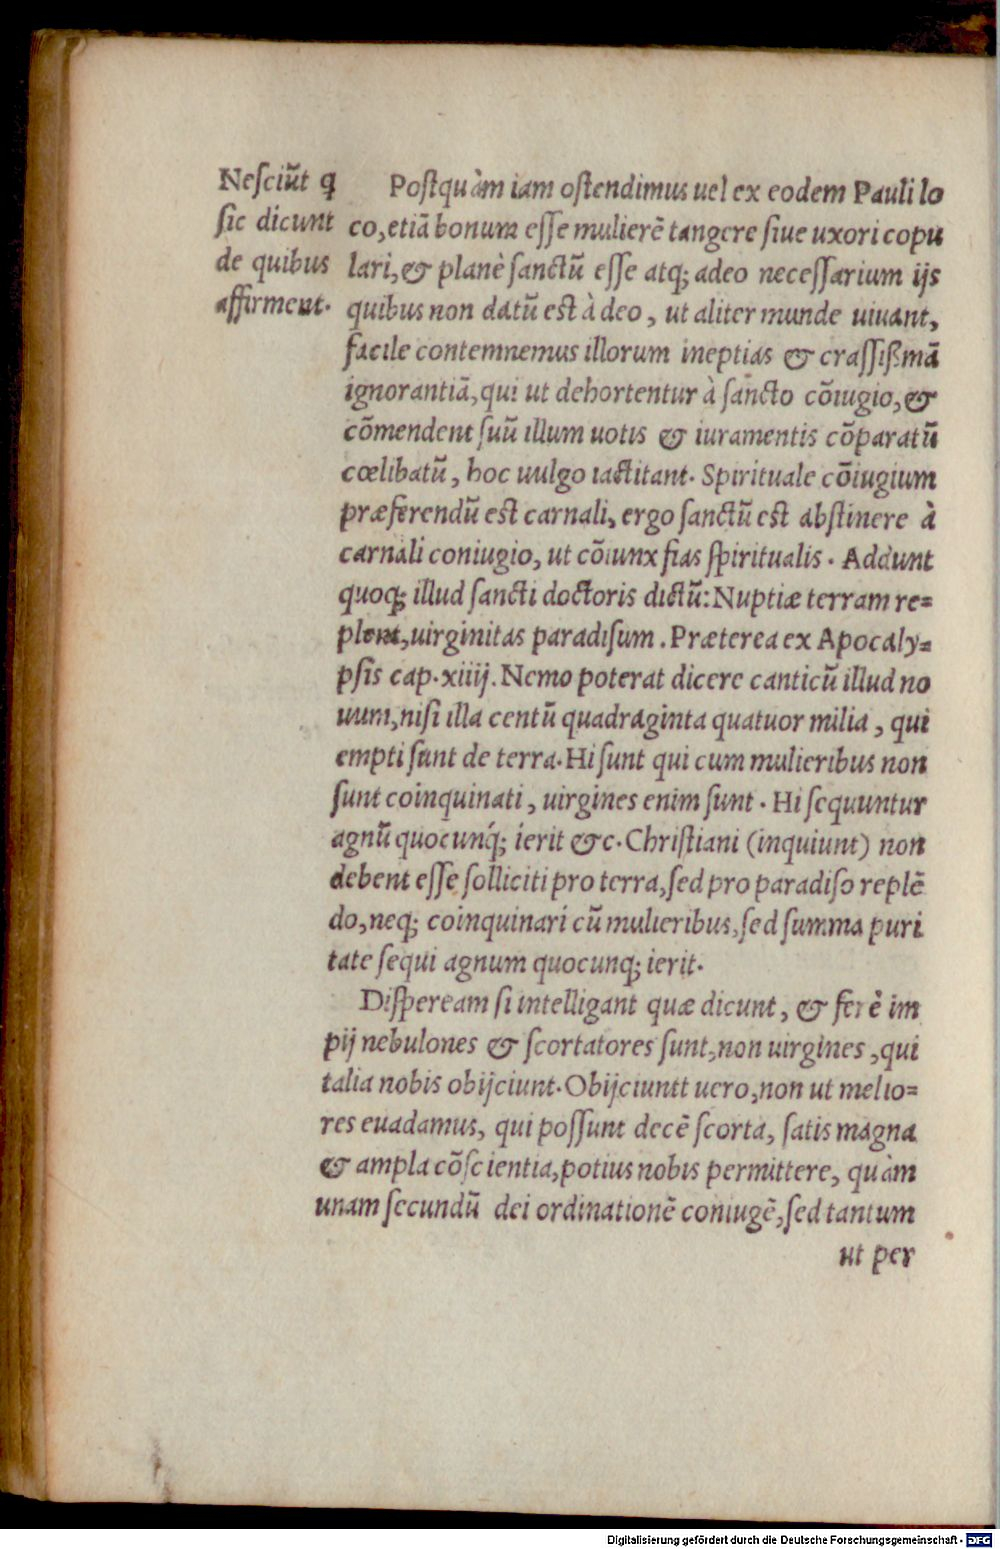 Nesciūt q
sic dicunt
de quibus
affirment.
Postquàm iam ostendimus uel ex eodem Pauli lo
co, etiā bonum esse mulierē tangere siue uxori copu
lari, & planè sanctū esse atq; adeo necessarium ijs
quibus non datū est à deo, ut aliter munde uiuant,
facile contemnemus illorum ineptias & crassißmā
ignorantiā, qui ut dehortentur à sancto cōiugio, &
cōmendent suū illum uotis & iuramentis cōparatū
cœlibatū, hoc uulgo iactitant. Spirituale cōiugium
præferendū est carnali, ergo sanctū est abstinere à
carnali coniugio, ut cōiunx fias spiritualis. Addunt
quoq; illud sancti doctoris dictū: Nuptiæ terram re=
plent, uirginitas paradisum. Præterea ex Apocaly=
psis cap. xiiij. Nemo poterat dicere canticū illud no
uum, nisi illa centū quadraginta quatuor milia, qui
empti sunt de terra. Hi sunt qui cum mulieribus non
sunt coinquinati, uirgines enim sunt. Hi sequuntur
agnū quocunq́; ierit &c. Christiani (inquiunt) non
debent esse solliciti pro terra, sed pro paradiso replē
do, neq; coinquinari cū mulieribus, sed summa puri
tate sequi agnum quocunq; ierit.
Dispeream si intelligant quæ dicunt, & ferè im
pij nebulones & scortatores sunt, non uirgines, qui
talia nobis obijciunt. Obijciuntt uero, non ut melio=
res euadamus, qui possunt decē scorta, satis magna
& ampla cōscientia, potius nobis permittere, quàm
unam secundū dei ordinationē coniugē, sed tantum
ut per
Digitalisierung gefördert durch die Deutsche Forschungsgemeinschaft - DFG